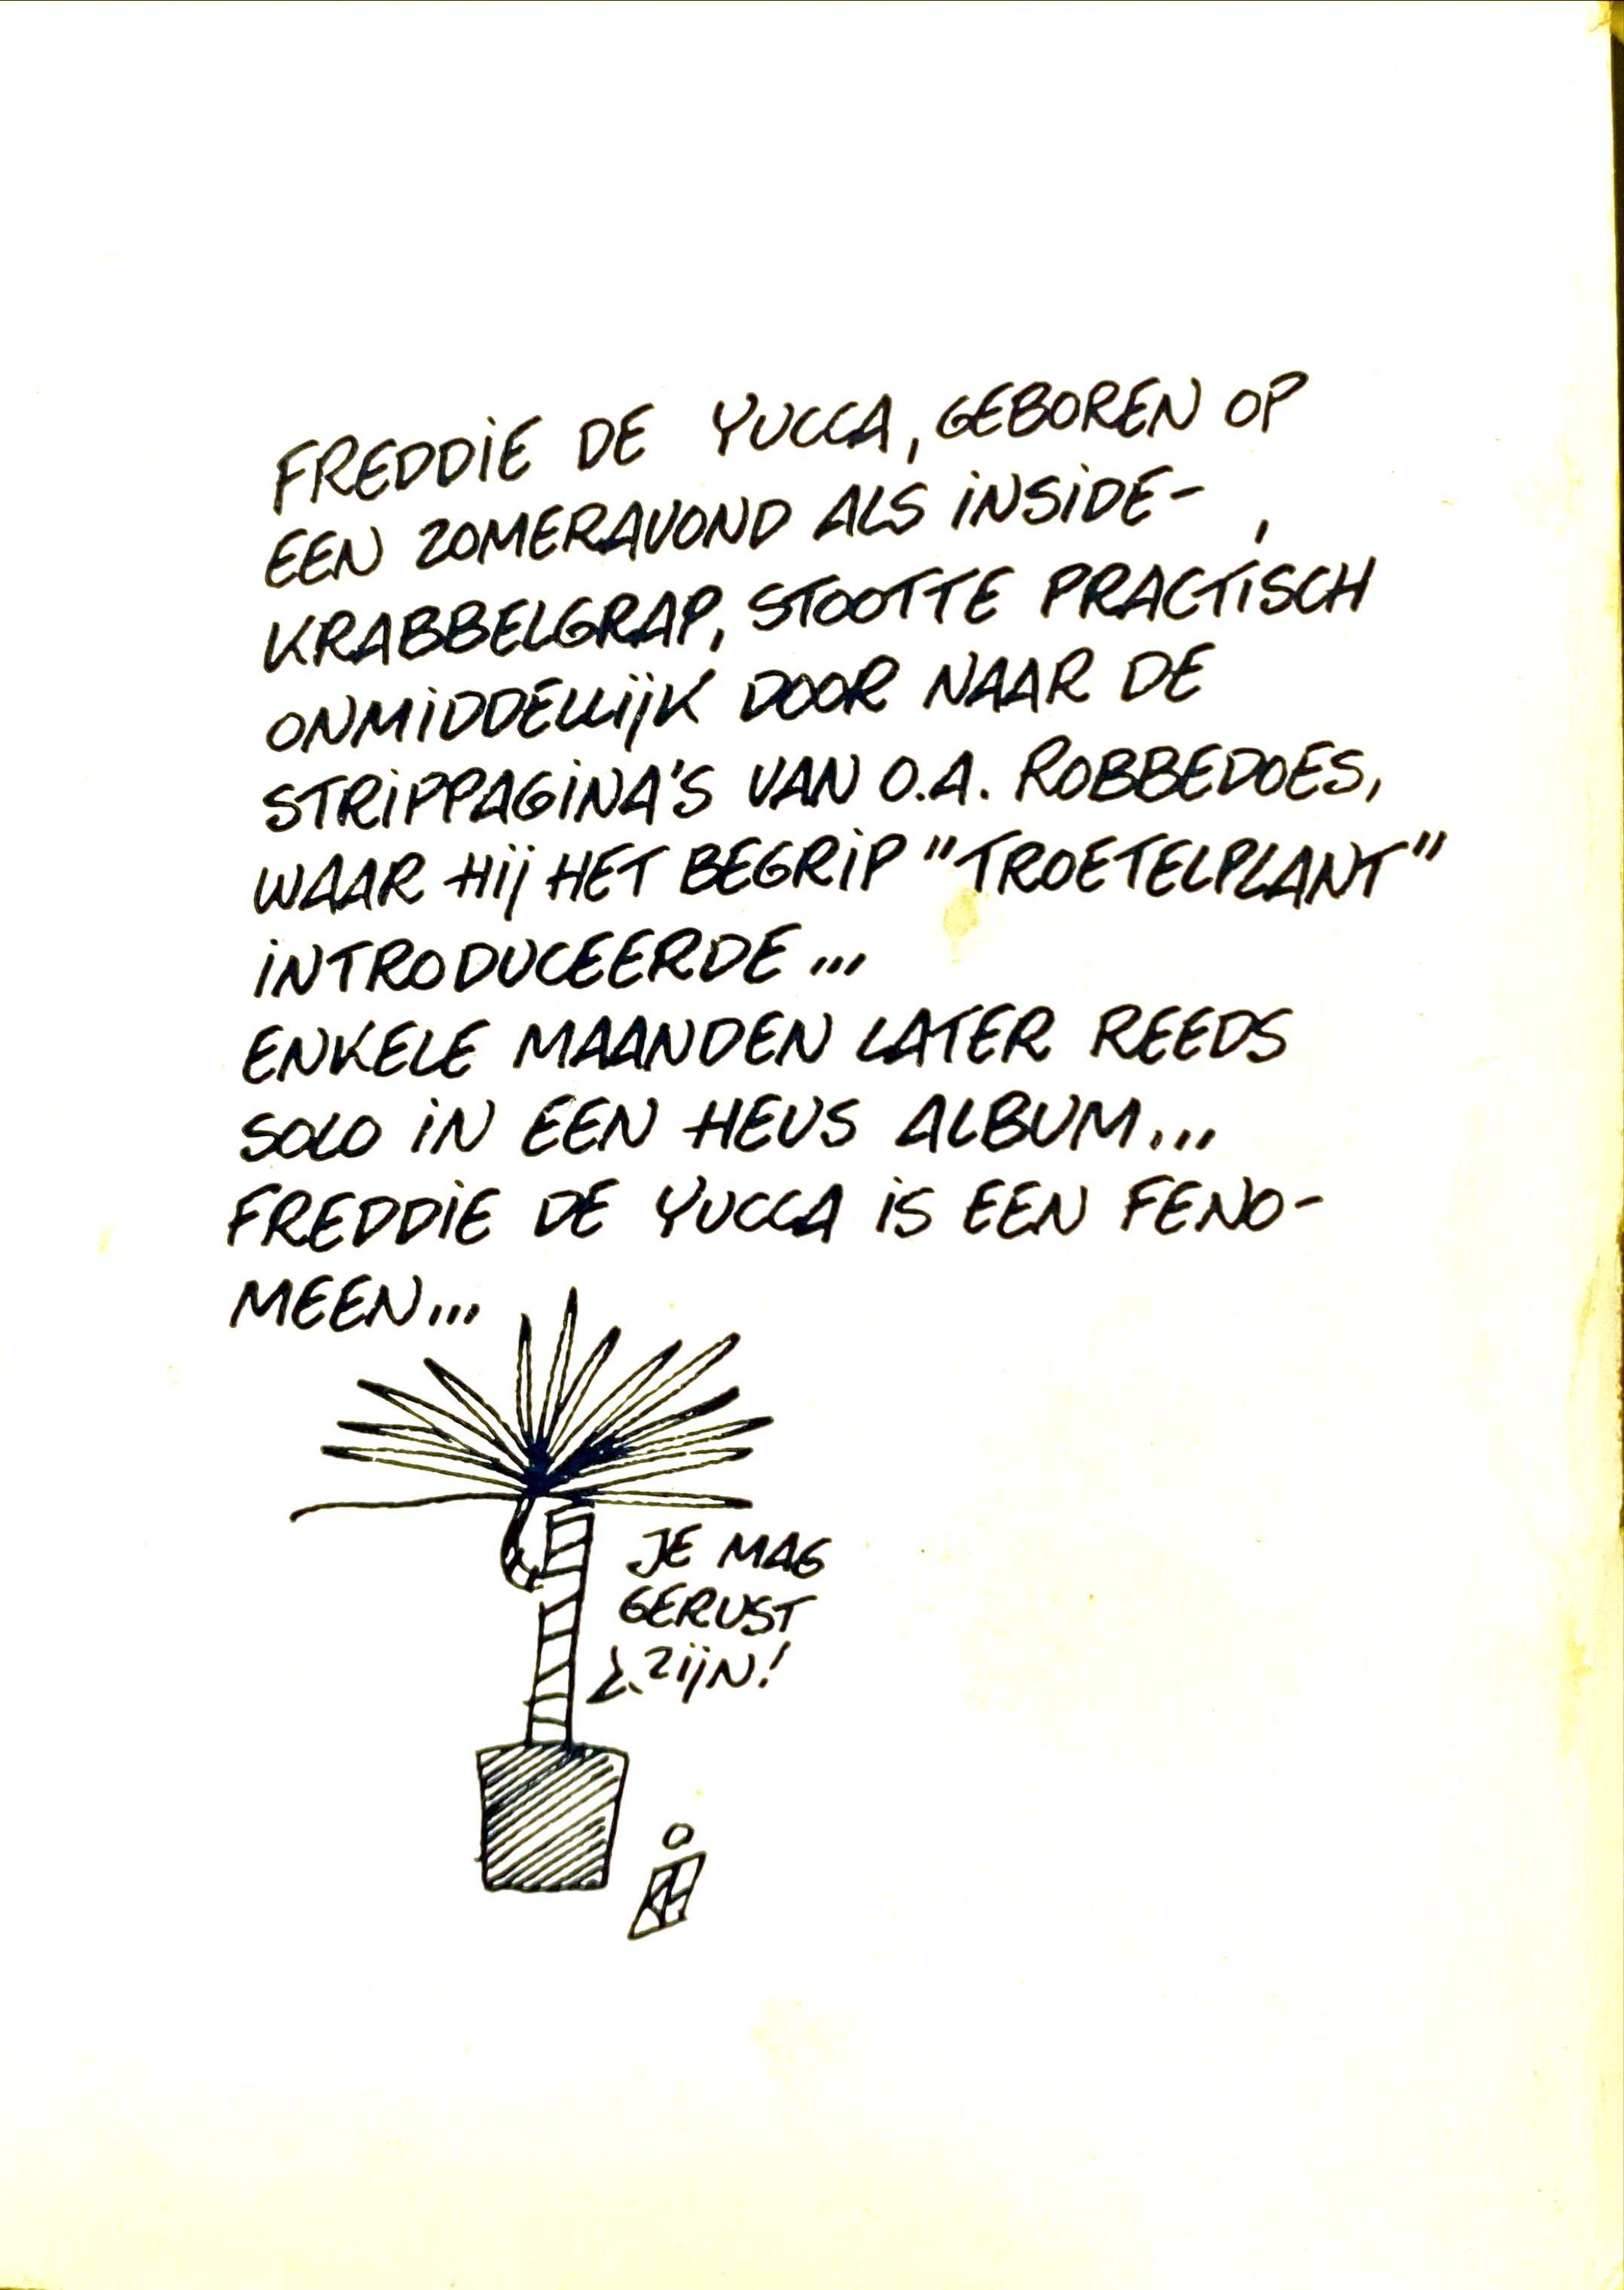 FREDDIE DE YUCCA, GEBOREN OP
EEN ZOMERAVOND ALS INSIDE-
KRABBELGRAP, STOOTTE PRACTISCH
ONMIDDELLIJK DOOR NAAR DE
STRIPPAGINA'S VAN O.A. ROBBEDOES,
WAAR HIJ HET BEGRIP "TROETELPLANT"
INTRODUCEERDE...
ENKELE MAANDEN LATER REEDS
SOLO IN EEN HEUS ALBUM...
FREDDIE DE YUCCA IS EEN FENO-
MEEN...
JE MAG
GERUST
ZIJN!